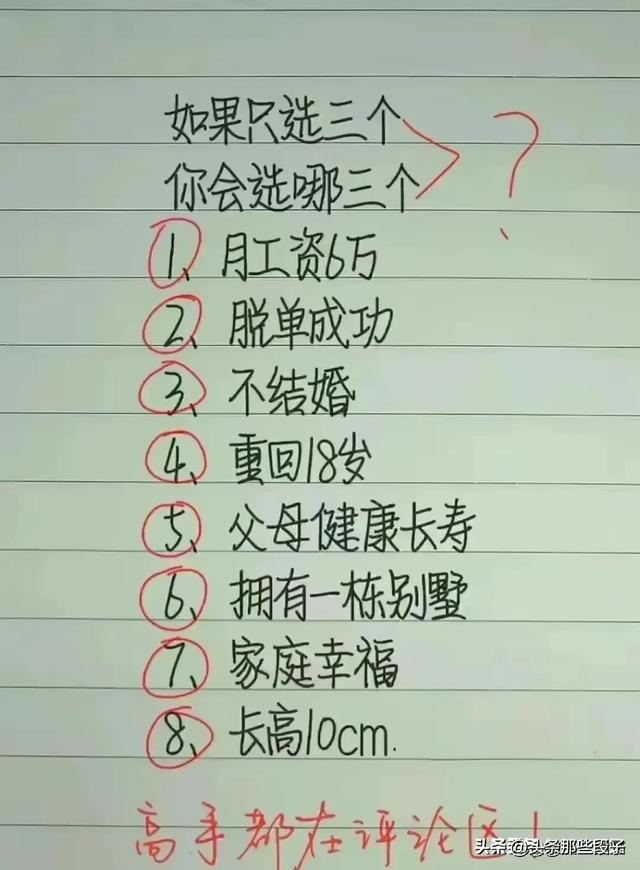 如果只选三个
你会选哪三个
?
1、月工资6万
2、脱单成功
3、不结婚
4、重回18岁
5、父母健康长寿
6、拥有一栋别墅
7、家庭幸福
8、长高10cm.
高手都在评论区!
头条@头条那些段子